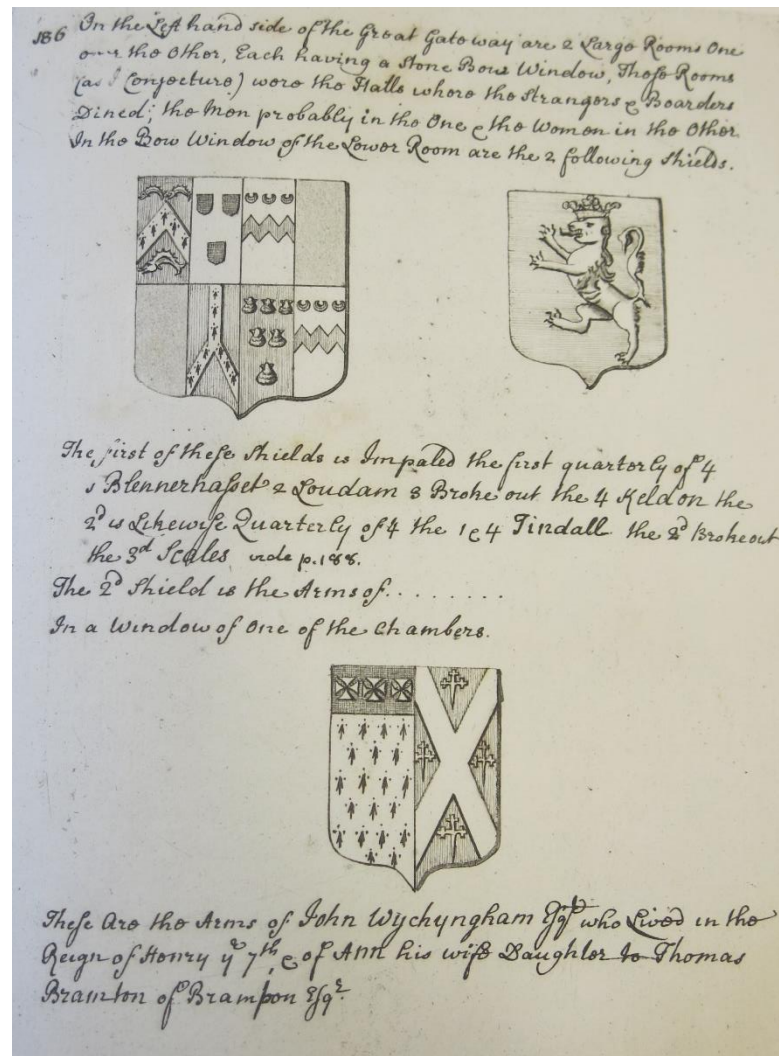 186 On the Left hand side of the Great Gateway are 2 Large Rooms One
over the Other, Each having a Stone Bow Window, Those Rooms
(as I Conjecture) were the Halls where the Strangers & Boarders
Dined; the Men probably in the One & the Women in the Other
In the Bow Window of the Lower Room are the 2 following Shields.
The first of these Shields is Impaled the first quarterly of 4
1 Blennerhasset 2 Loudam 3 Broke out the 4 Keldon the
2d is Likewise Quarterly of 4 the 1 & 4 Tindall the 2d Broke out
the 3d Scales vide p. 188.
The 2d Shield is the Arms of . . . . . . . .
In a Window of One of the Chambers.
These Are the Arms of John Wychyngham Esqr who Lived in the
Reign of Henry ye 7th, & of Ann his wife Daughter to Thomas
Bramton of Brampon Esqr.